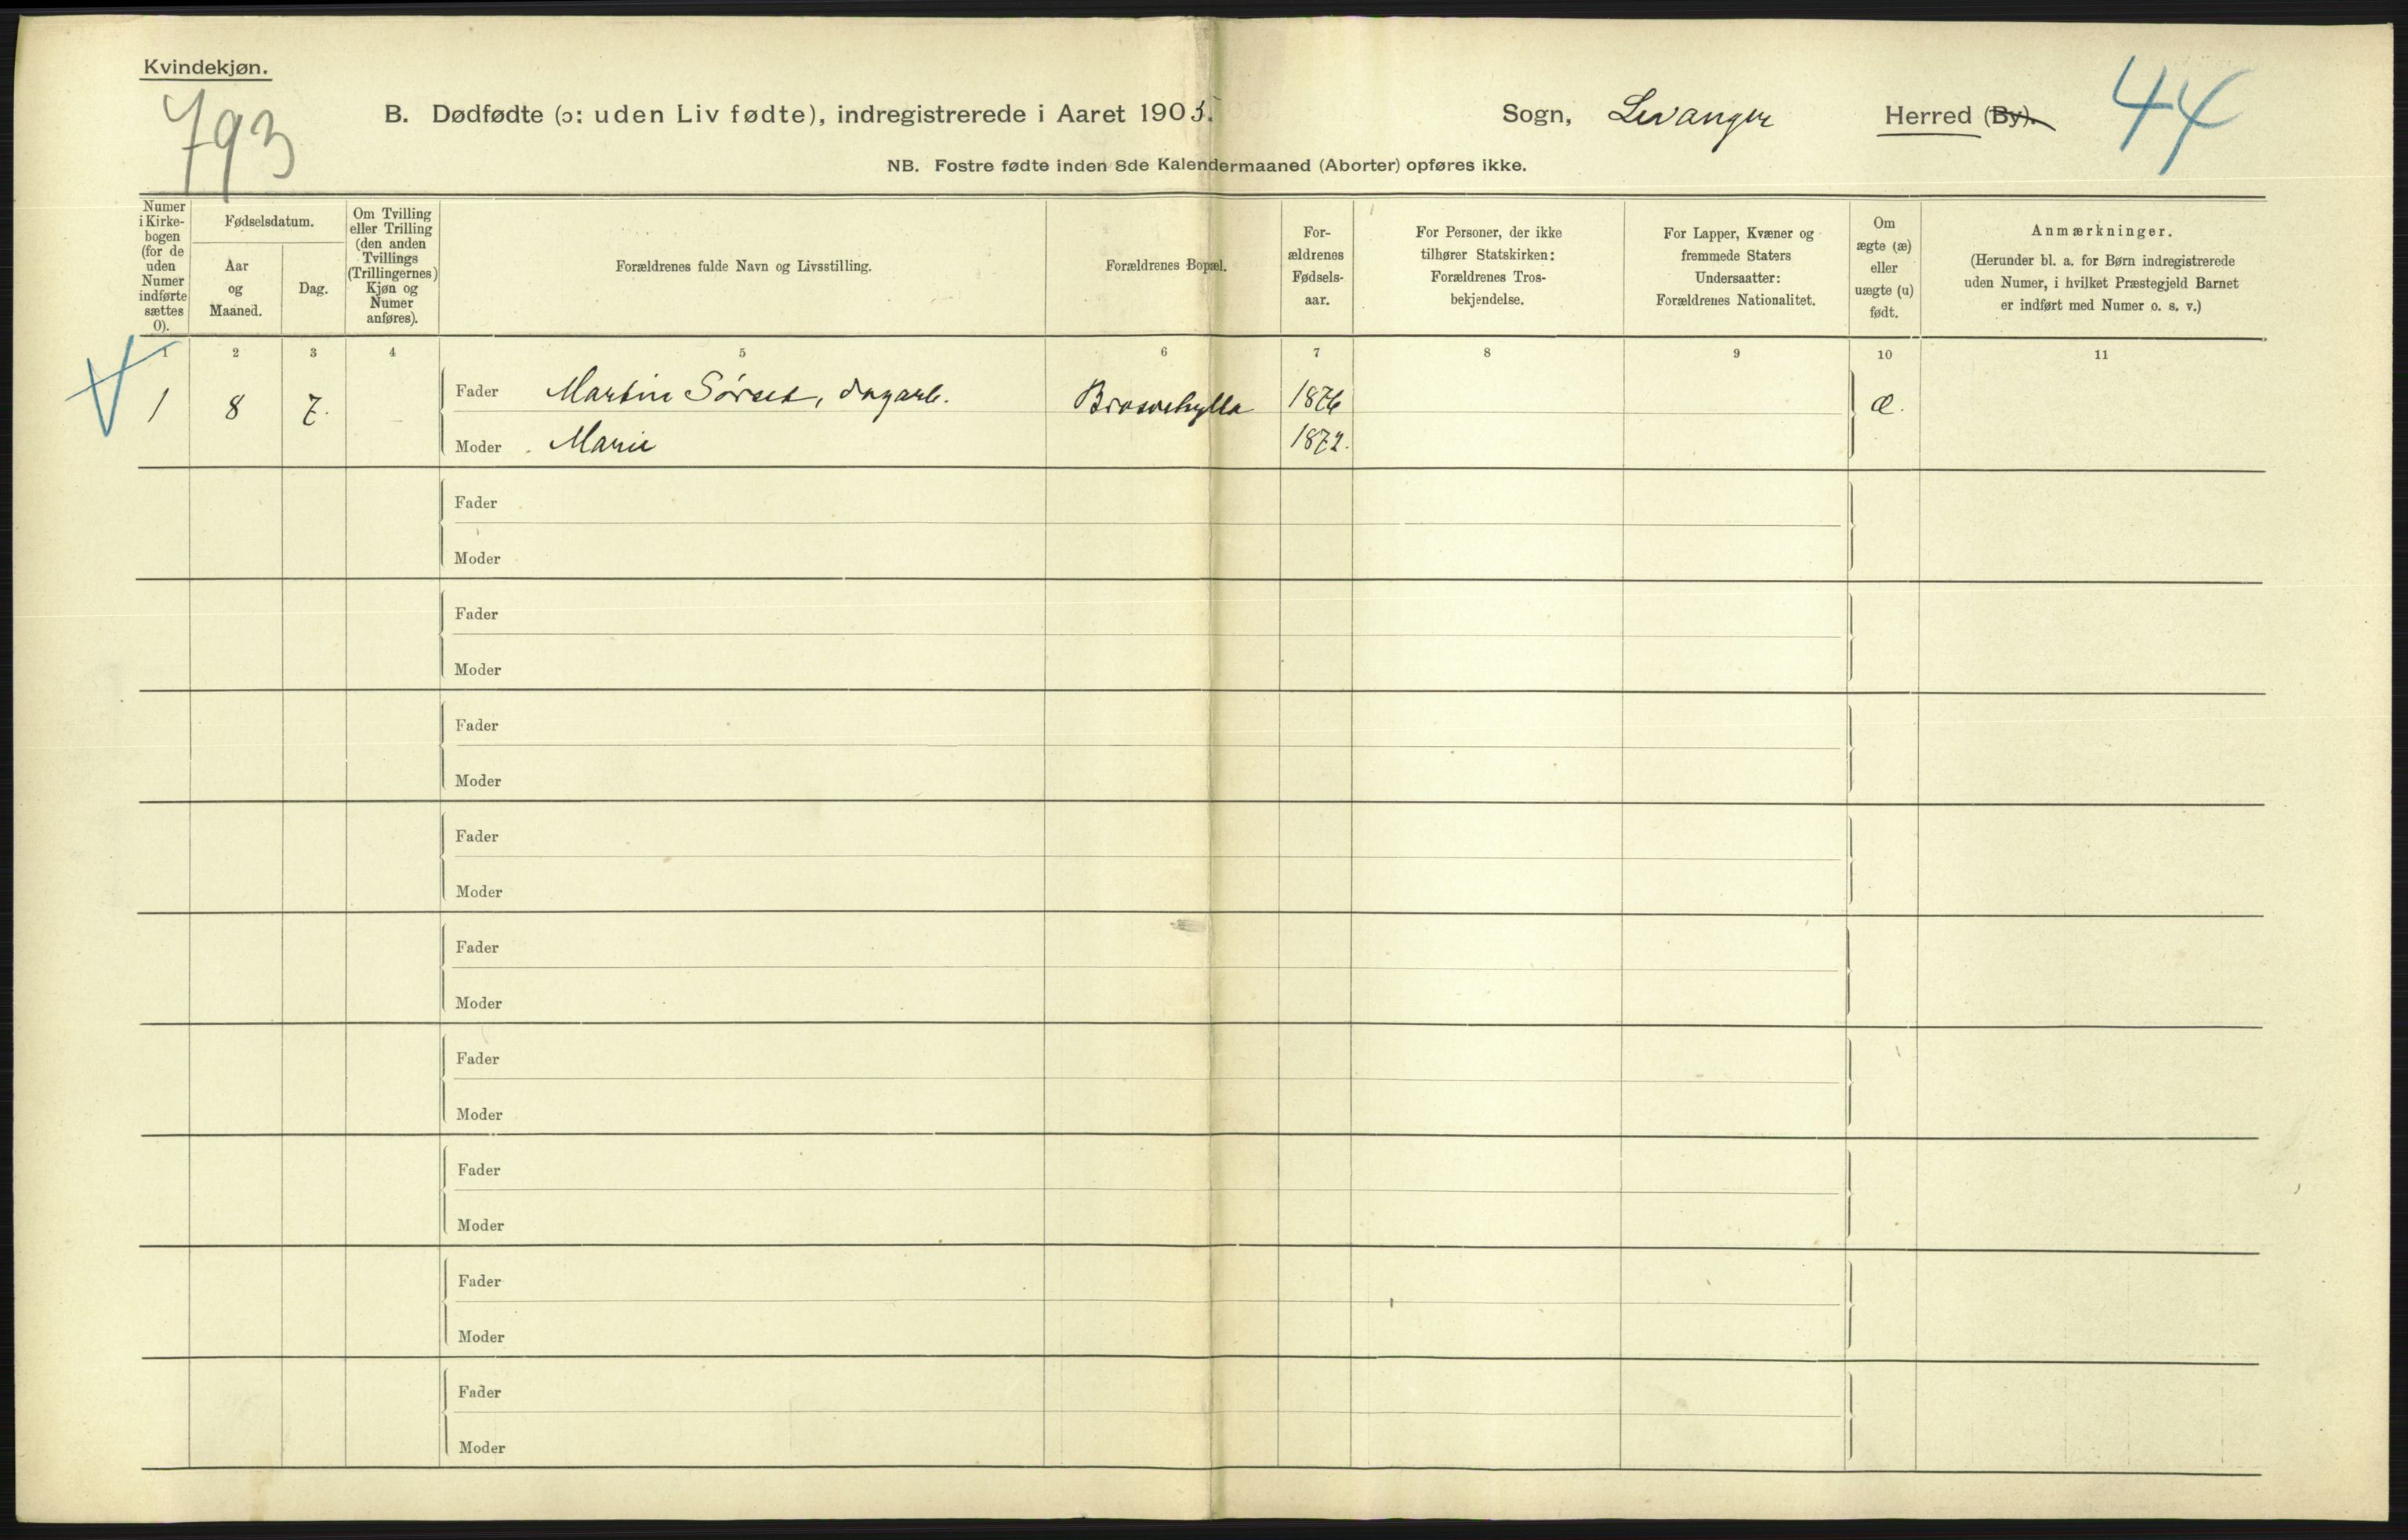 Kvindekjøn.
793
B. Dødfødte (ɔ: uden Liv fødte), indregistrerede i Aaret 1905. Sogn, Levanger Herred (By). 44
NB. Fostre fødte inden 8de Kalendermaaned (Aborter) opføres ikke.
Numer i Kirke-bogen (for de uden Numer indførte sættes 0).
Fødselsdatum.
Aar og Maaned.
Dag.
Om Tvilling eller Trilling (den anden Tvillings (Trillingernes) Kjøn og Numer anføres).
Forældrenes fulde Navn og Livsstilling.
Forældrenes Bopæl.
For-ældrenes Fødsels-aar.
For Personer, der ikke tilhører Statskirken: Forældrenes Tros-bekjendelse.
For Lapper, Kvæner og fremmede Staters Undersaatter: Forældrenes Nationalitet.
Om ægte (æ) eller uægte (u) født.
Anmærkninger.
(Herunder bl. a. for Børn indregistrerede uden Numer, i hvilket Præstegjeld Barnet er indført med Numer o. s. v.)
1 2 3 4 5 6 7 8 9 10 11
1 8 7. Fader Martin Sørset, dagarb. 1876 æ.
Moder Marie 1872.
Fader
Moder
Fader
Moder
Fader
Moder
Fader
Moder
Fader
Moder
Fader
Moder
Fader
Moder
Fader
Moder
Fader
Moder